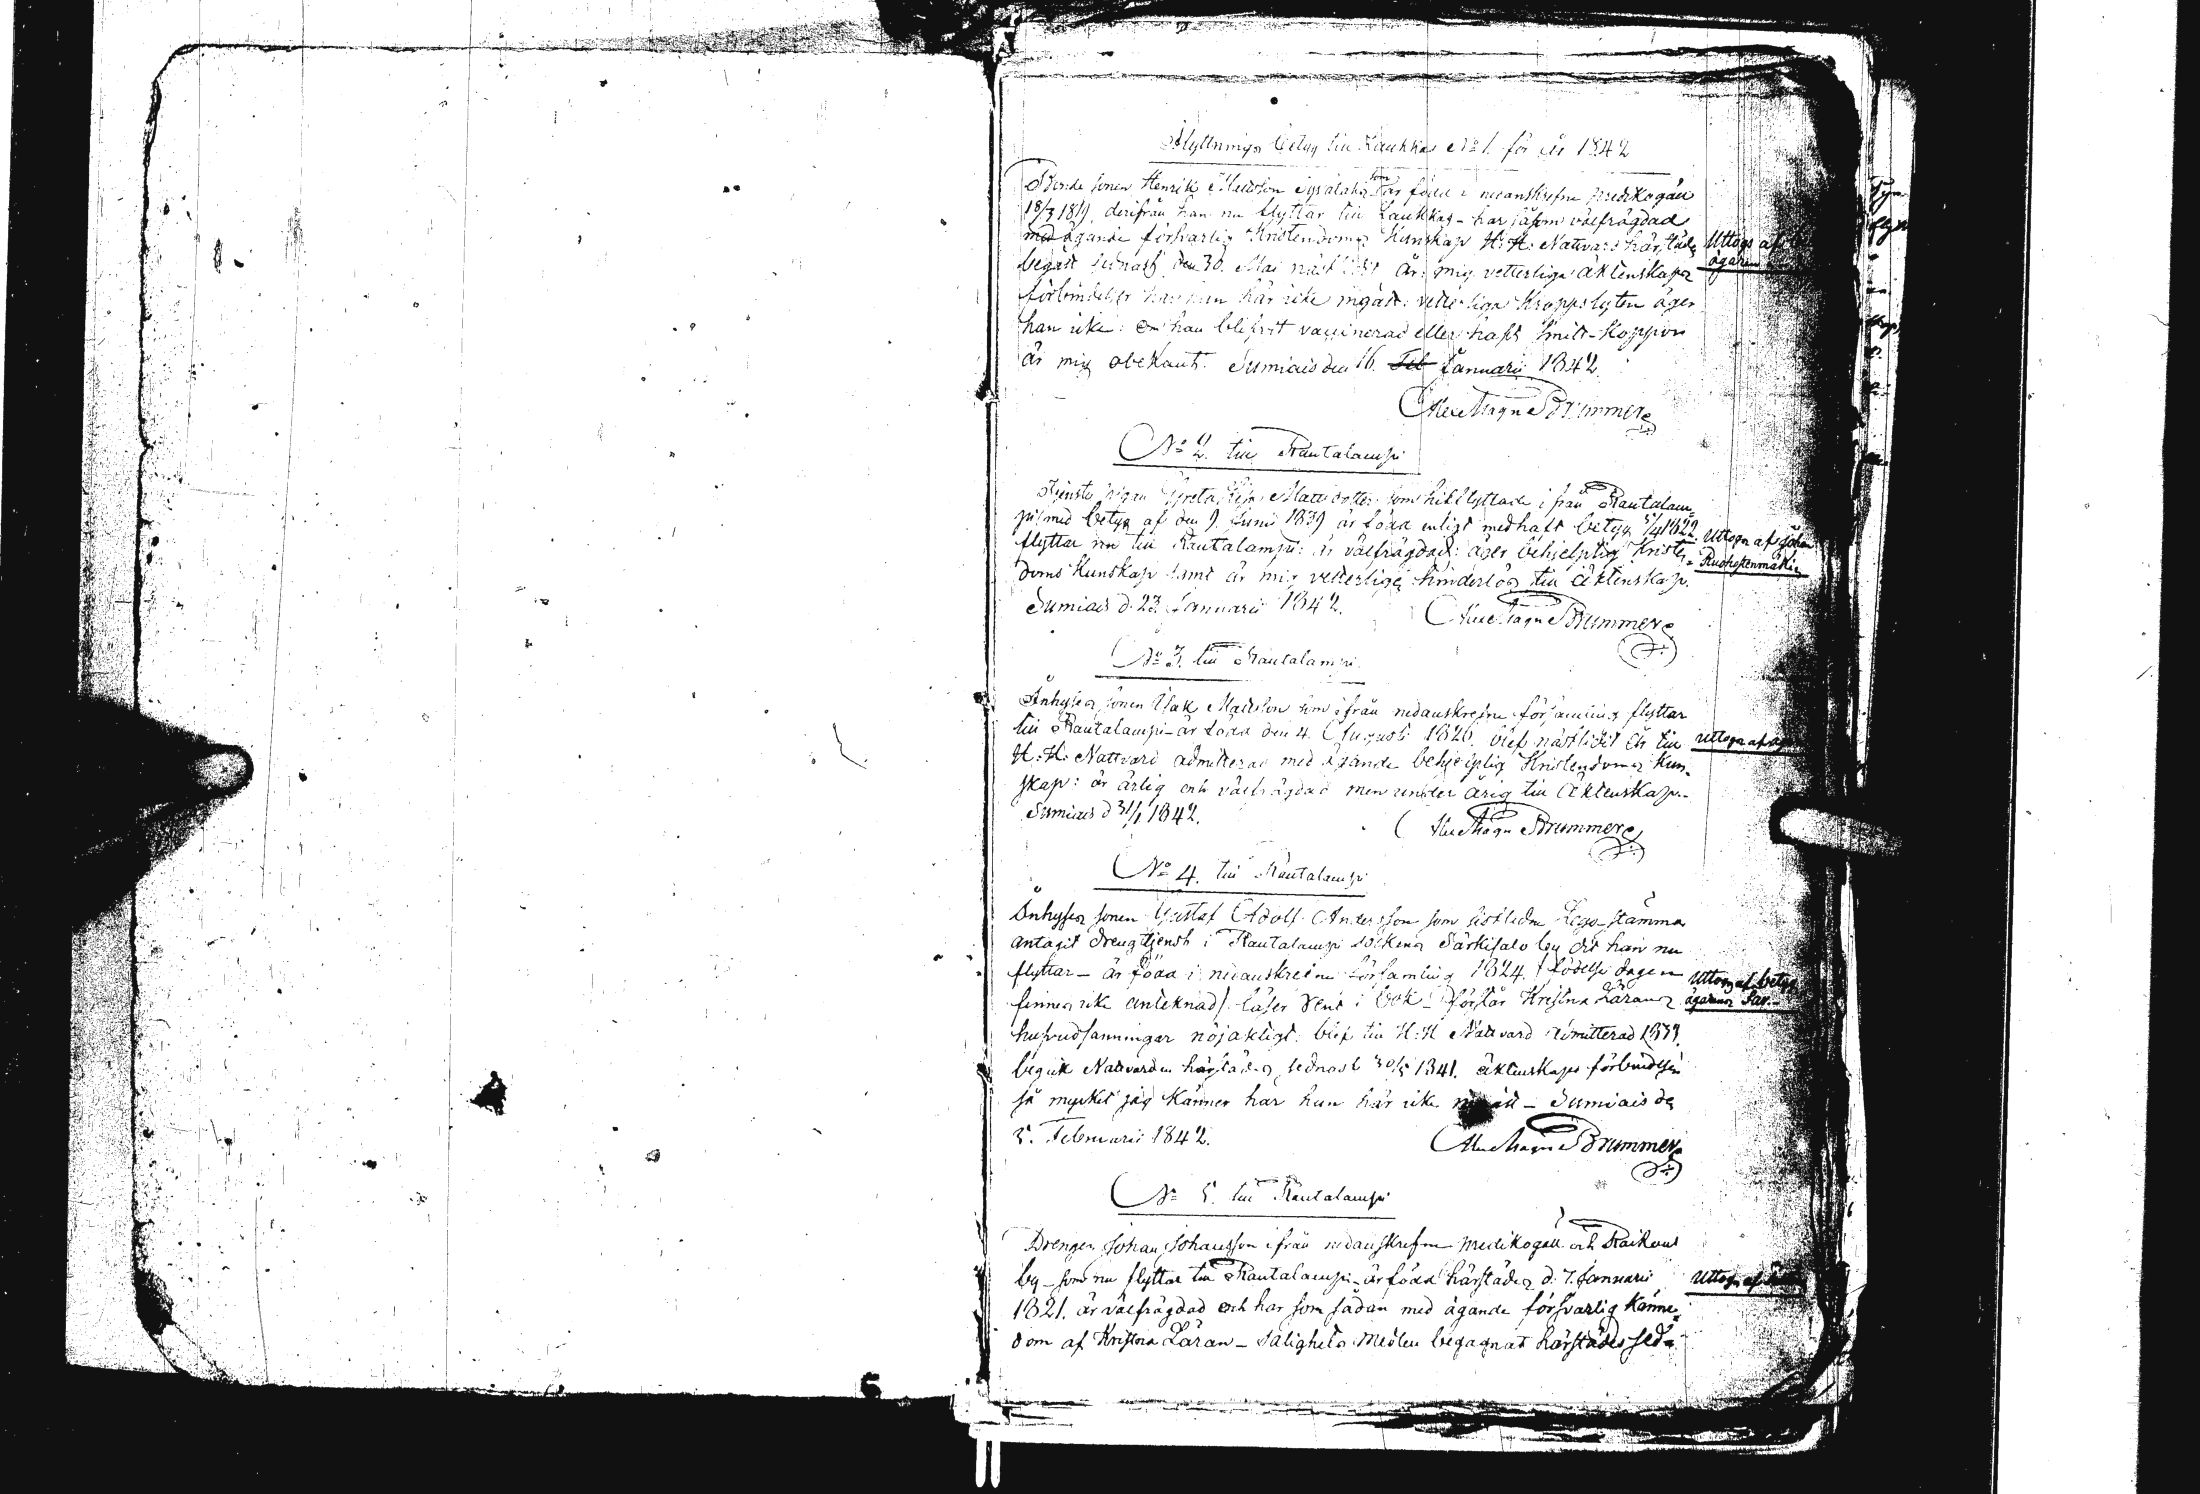 Flyttnings betyg till Laukkas No 1. för år 1842
Bonde sonen Henrik Mattsson som är född i nedanskrefne predikogäll
18/3 1819, derifrån han nu flyttar till Laukkas – har såsom välfrägdad
med ägande förfvarlig Kristendoms Kunskap H: H: Nattvard härstädes
begått sednast den 30. Mai näst år: mig vetterliga äktenskaps
förbindelser har han här icke ingått: vetterliga Kropps lyten äger
han icke: om han blifvit vaccinerad eller haft Smitt-Koppor
är mig obekant. Sumiais den 16. Feb Januarii 1842.
Alex Magn Brummer
Uttogs af
ägaren
No 2. till Rautalampi
Tjenste pigan Greta Matts dotter som hitflyttade i från Rautalam-
pi med betyg af den 9. Junii 1839 är född enligt medhaft betyg 1822.
flyttar nu till Rautalampi: är välfrägdad: äger behjelplig Kristen-
doms Kunskap samt är mig vetterligen hinderlös till äktenskap.
Sumiais d. 23. Januarii 1842.
Alex Magn Brummer
Uttogs af
No 3. till Rautalampi
Inhyses sonen Isak Mattsson som ifrån nedanskrefne församling flyttar
till Rautalampi – är född den 4. Augusti 1826. blef nästlidit år till
H: H: Nattvard admitterad med ägande behjelplig Kristendoms Kun-
skap: är ärlig och välfrägdad men under årig till äktenskap.
Sumiais d 31/1 1842.
Alex Magn Brummer
Uttogs af
No 4. till Rautalampi
Inhyses sonen Gustaf Adolf Andersson som sistledne Lego-stämma
antagit drengtjenst i Rautalampi sockens Särkisalo by dit han nu
flyttar – är född i nedanskrefne församling 1824. födelse dagen
finnes icke antecknad/ läser rent i bok – förstår Kristna Lärans
hufvudsanningar nöjaktigt: blef till H: H Nattvard admitterad 1839.
begick Nattvarden härstädes sednast 30/5 1841. äktenskaps förbindelser
så mycket jag känner har han här icke ingått – Sumiais den
5. Februarii 1842.
Alex Magn Brummer
Uttogs af betygs
ägarens Far.
No 5. till Rautalampi
Drengen Johan Johansson ifrån nedanskrefne predikogäll och
by – som nu flyttar till Rautalampi – är född härstädes d. 7. Januarii
1821. är välfrägdad och har som sådan med ägande försvarlig känne-
dom af Kristna Läran – salighets medlen begagnat härstädes sed-
Uttogs af